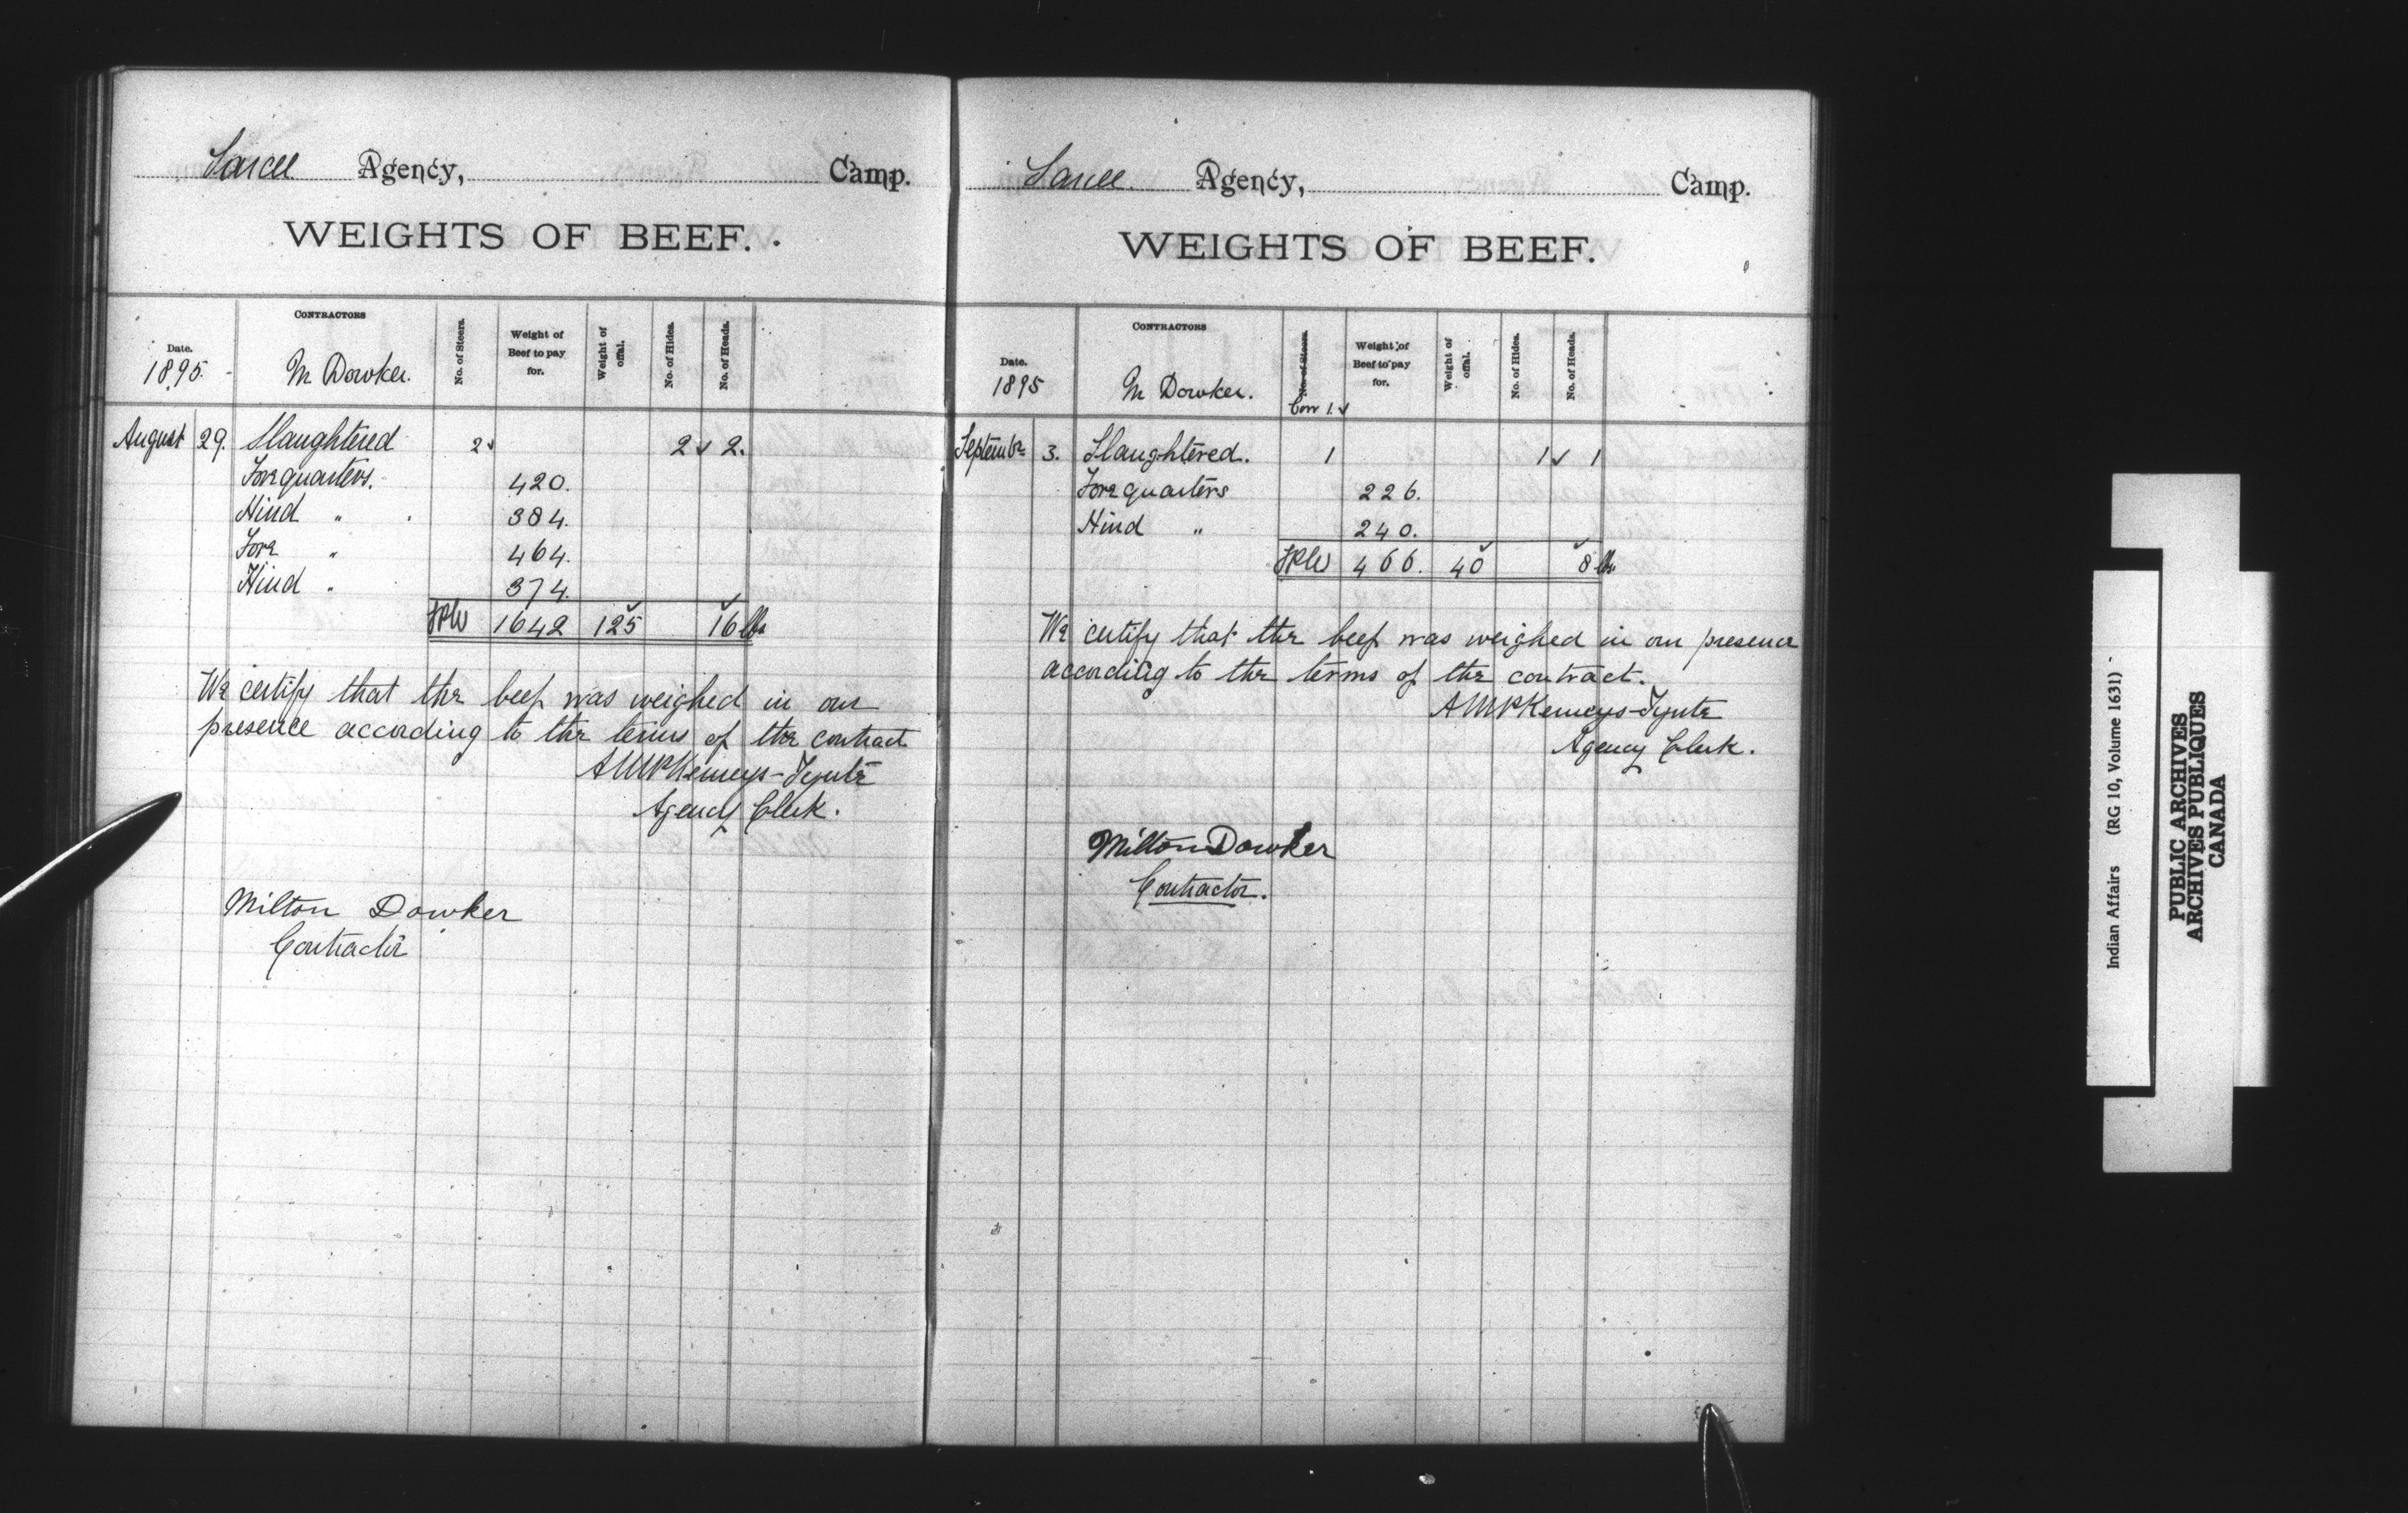 Sarcee Agency, Camp.
WEIGHTS OF BEEF.
Date. 1895. CONTRACTORS M Dowker. No. of Steers. Weight of Beef to pay for. Weight of offal. No. of Hides. No. of Heads.
August 29. Slaughtered 2 ✓ 2 ✓ 2.
Forequarters. 420.
Hind " 384.
Fore " 464.
Hind " 374.
1642 125 ✓ 16 lbs ✓
We certify that the beef was weighed in our
presence according to the terms of the contract
AMPKemeys-Tynte
Agency Clerk.
Milton Dowker
Contractor
Sarcee. Agency, Camp.
WEIGHTS OF BEEF.
Date. 1895 CONTRACTORS M Dowker. No. of Steers. Weight of Beef to pay for. Weight of offal. No. of Hides. No. of Heads.
Cow 1. ✓
September 3. Slaughtered. 1 1 ✓ 1
Forequarters 226.
Hind " 240.
466. 40 ✓ 8 lbs ✓
We certify that the beef was weighed in our presence
according to the terms of the contract.
AMPKemeys-Tynte
Agency Clerk.
Milton Dowker
Contractor.
Indian Affairs (RG 10, Volume 1631)
PUBLIC ARCHIVES
ARCHIVES PUBLIQUES
CANADA